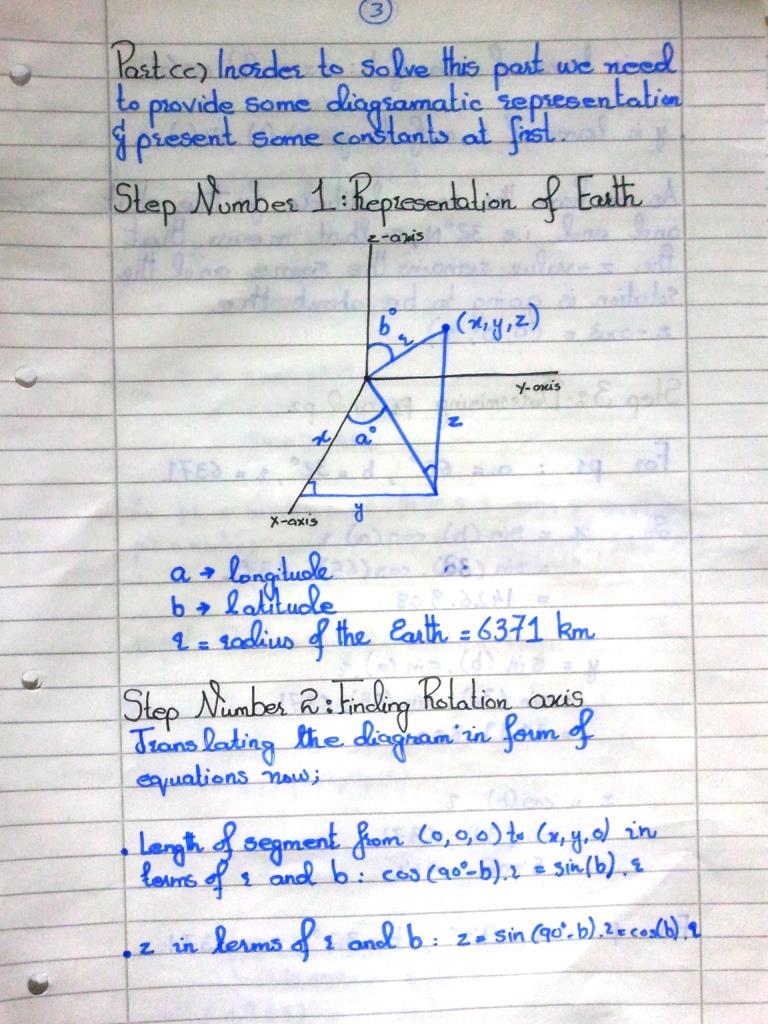 3
Part(c) Inorder to solve this part we need
to provide some diagramatic representation
& present some constants at first.
Step Number 1: Representation of Earth
z-axis
b°
r
(x, y, z)
y-axis
x
a°
z
y
x-axis
a → longitude
b → latitude
r = radius of the Earth = 6371 km
Step Number 2: Finding Rotation axis
Translating the diagram in form of
equations now;
• Length of segment from (0,0,0) to (x,y,0) in
terms of r and b: cos(90°-b).r = sin(b).r
• z in terms of r and b: z = sin(90°-b).r = cos(b).r